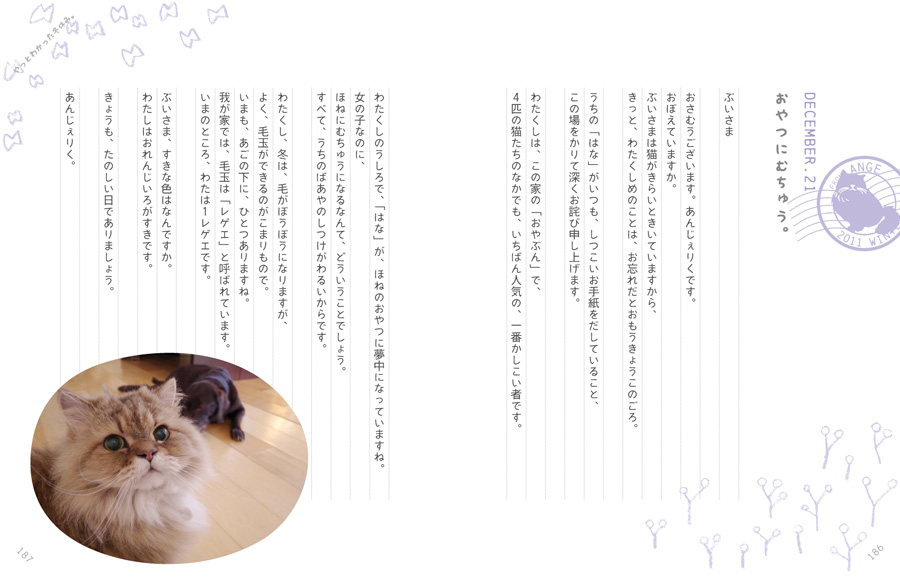 DECEMBER.21
おやつにむちゅう。
ANGE
2011 WIN
ぶいさま
おさむうございます。あんじぇりくです。
おぼえていますか。
ぶいさまは猫がきらいときいていますから、
きっと、わたくしめのことは、お忘れだとおもうきょうこのごろ。
うちの「はな」がいつも、しつこいお手紙をだしていること、
この場をかりて深くお詫び申し上げます。
わたくしは、この家の「おやぶん」で、
4匹の猫たちのなかでも、いちばん人気の、一番かしこい者です。
186
わたくしのうしろで、「はな」が、ほねのおやつに夢中になっていますね。
女の子なのに、
ほねにむちゅうになるなんて、どういうことでしょう。
すべて、うちのばあやのしつけがわるいからです。
わたくし、冬は、毛がぼうぼうになりますが、
よく、毛玉ができるのがこまりもので。
いまも、あごの下に、ひとつありますね。
我が家では、毛玉は「レゲエ」と呼ばれています。
いまのところ、わたは1レゲエです。
ぶいさま、すきな色はなんですか。
わたしはおれんじいろがすきです。
きょうも、たのしい日でありましょう。
あんじぇりく。
187